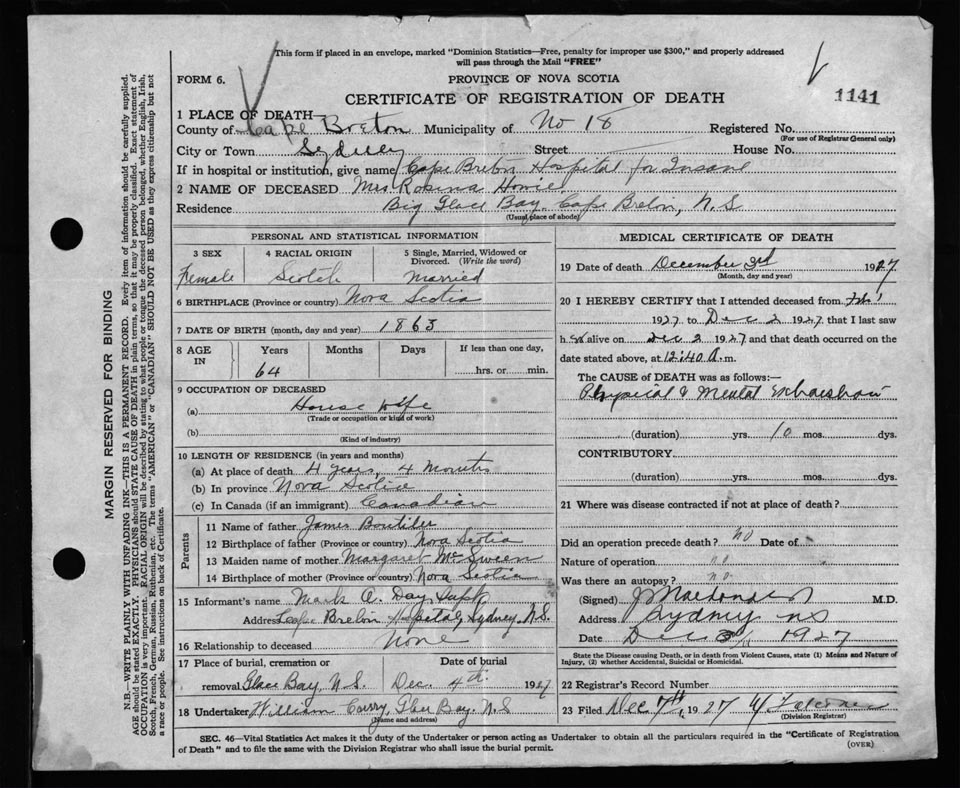 This form if placed in an envelope, marked "Dominion Statistics—Free, penalty for improper use $300," and properly addressed
will pass through the Mail "FREE"
FORM 6.
PROVINCE OF NOVA SCOTIA
1141
CERTIFICATE OF REGISTRATION OF DEATH
1 PLACE OF DEATH—
County of Cape Breton Municipality of No 18 Registered No.
(For use of Registrar General only)
City or Town Sydney Street House No.
If in hospital or institution, give name Cape Breton Hospital for Insane
2 NAME OF DECEASED Mrs Robina Howie
Residence Big Glace Bay, Cape Breton, N.S
(Usual place of abode)
PERSONAL AND STATISTICAL INFORMATION
3 SEX
Female
4 RACIAL ORIGIN
Scotch
5 Single, Married, Widowed or
Divorced. (Write the word)
Married
6 BIRTHPLACE (Province or country) Nova Scotia
7 DATE OF BIRTH (month, day and year) 1863
8 AGE
IN
Years
64
Months
Days
If less than one day,
hrs. or min.
9 OCCUPATION OF DECEASED
(a) House Wife
(Trade or occupation or kind of work)
(b)
(Kind of industry)
10 LENGTH OF RESIDENCE (in years and months)
(a) At place of death 4 years, 4 months
(b) In province Nova Scotia
(c) In Canada (if an immigrant) Canadian
Parents
11 Name of father James Boutilier
12 Birthplace of father (Province or country) Nova Scotia
13 Maiden name of mother Margaret McSween
14 Birthplace of mother (Province or country) Nova Scotia
15 Informant's name Mark A. Day, Supt
Address Cape Breton Hospital, Sydney, N.S.
16 Relationship to deceased None
17 Place of burial, cremation or
removal Glace Bay, N.S.
Date of burial
Dec. 4th 1927
18 Undertaker William Curry, Glace Bay, N.S
(Name and address)
MEDICAL CERTIFICATE OF DEATH
19 Date of death December 3rd 1927
(Month, day and year)
20 I HEREBY CERTIFY that I attended deceased from Feb 1
1927 to Dec 2 1927 that I last saw
h er alive on Dec 2 1927 and that death occurred on the
date stated above, at 12:40 A. m.
The CAUSE of DEATH was as follows:—
Physical & Mental Exhaustion
(duration) yrs. 10 mos. dys.
CONTRIBUTORY
(duration) yrs. mos. dys.
21 Where was disease contracted if not at place of death?
Did an operation precede death? NO Date of
Nature of operation
Was there an autopsy? no
(Signed) Macdonald M.D.
Address Sydney NS
Date Dec 3 1927
State the Disease causing Death, or in death from Violent Causes, state (1) Means and Nature of
Injury, (2) whether Accidental, Suicidal or Homicidal.
22 Registrar's Record Number
23 Filed Dec. 7th, 1927
(Division Registrar)
SEC. 46—Vital Statistics Act makes it the duty of the Undertaker or person acting as Undertaker to obtain all the particulars required in the "Certificate of Registration
of Death" and to file the same with the Division Registrar who shall issue the burial permit.
(OVER)
MARGIN RESERVED FOR BINDING
N.B.—WRITE PLAINLY WITH UNFADING INK—THIS IS A PERMANENT RECORD. Every item of information should be carefully supplied.
AGE should be stated EXACTLY. PHYSICIANS should STATE CAUSE OF DEATH in plain terms, so that it may be properly classified. Exact statement of
OCCUPATION is very important. RACIAL ORIGIN will be described by stating to what people or tongue the deceased person belonged, whether English, Irish,
Scotch, French, German, Russian, Ruthenian, etc. The terms "AMERICAN" or "CANADIAN" SHOULD NOT BE USED as they express citizenship but not
a race or people. See instructions on back of Certificate.